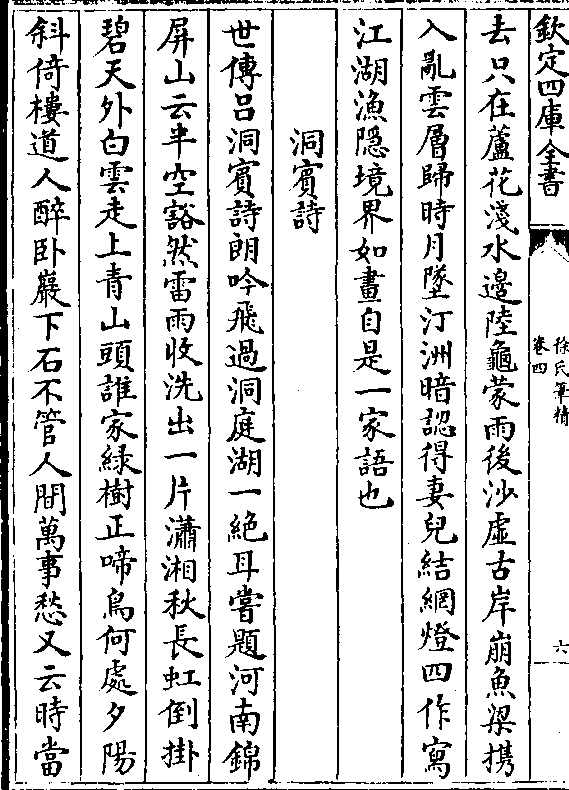 欽定四庫全書
徐氏筆精
卷四
六
去只在蘆花淺水邊陸龜蒙雨後沙虛古岸崩魚梁携
入亂雲層歸時月墜汀洲暗認得妻兒結網燈四作寫
江湖漁隱境界如畫自是一家語也
洞賓詩
世傳呂洞賓詩朗吟飛過洞庭湖一絕耳嘗題河南錦
屏山云半空豁然雷雨收洗出一片瀟湘秋長虹倒掛
碧天外白雲走上青山頭誰家綠樹正啼鳥何處夕陽
斜倚樓道人醉卧巖下石不管人間萬事愁又云時當